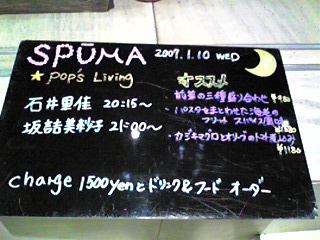 SPŪMA 2007.1.10 WED
★ Pop's Living
石井里佳 20:15〜
21:00〜
オススメ
・前菜の三種盛り合わせ
・パスタをまとわせた海老の
フリット スパイス風味
・カジキマグロとオリーブのトマト煮込み
¥1180
charge 1500yenとドリンク&フード オーダー